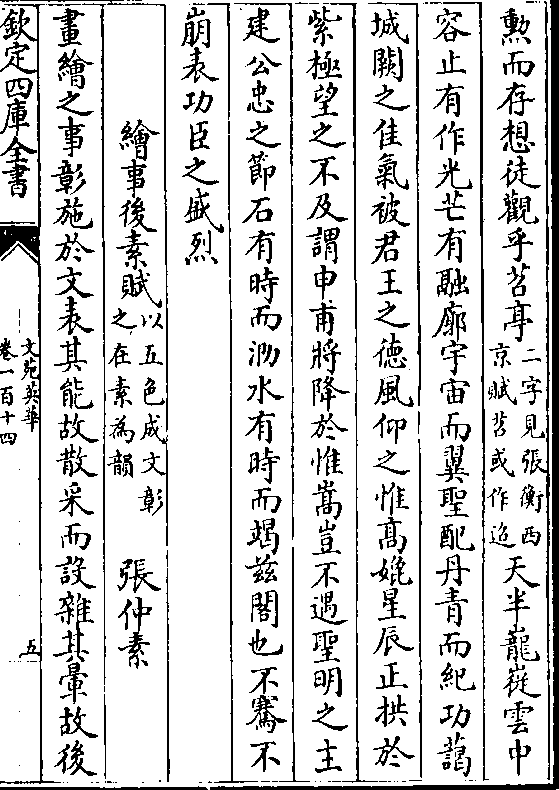 勲而存想徒觀乎苕亭二字見張衡西京賦苕或作迢天半巃嵸雲中
容止有作光芒有融廓宇宙而翼聖配丹青而紀功藹
城闕之佳氣被君王之徳風仰之惟髙嬎星辰正拱於
紫極望之不及謂申甫將降於惟嵩豈不遇聖明之主
建公忠之節石有時而泐水有時而竭兹閣也不騫不
崩表功臣之盛烈
繪事後素賦以五色成文彰之在素為韻 張仲素
畫繪之事彰施於文表其能故散采而設雜其暈故後
欽定四庫全書
文苑英華
卷一百十四
五